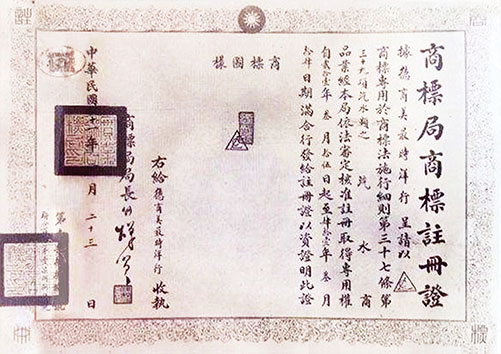 商標局商標註冊證
據德商美最時洋行呈請以
商標專用於商標法施行細則第三十七條第
三十九項汽水類之汽水商
品業經本局依法審定核准註冊取得專用權
自貳拾壹年叁月拾伍日起至肆拾壹年叁月
拾肆日期滿合行發給註冊證以資證明此證
商標圖樣
右給德商美最時洋行收執
商標局局長
中華民國十一年月二十三日